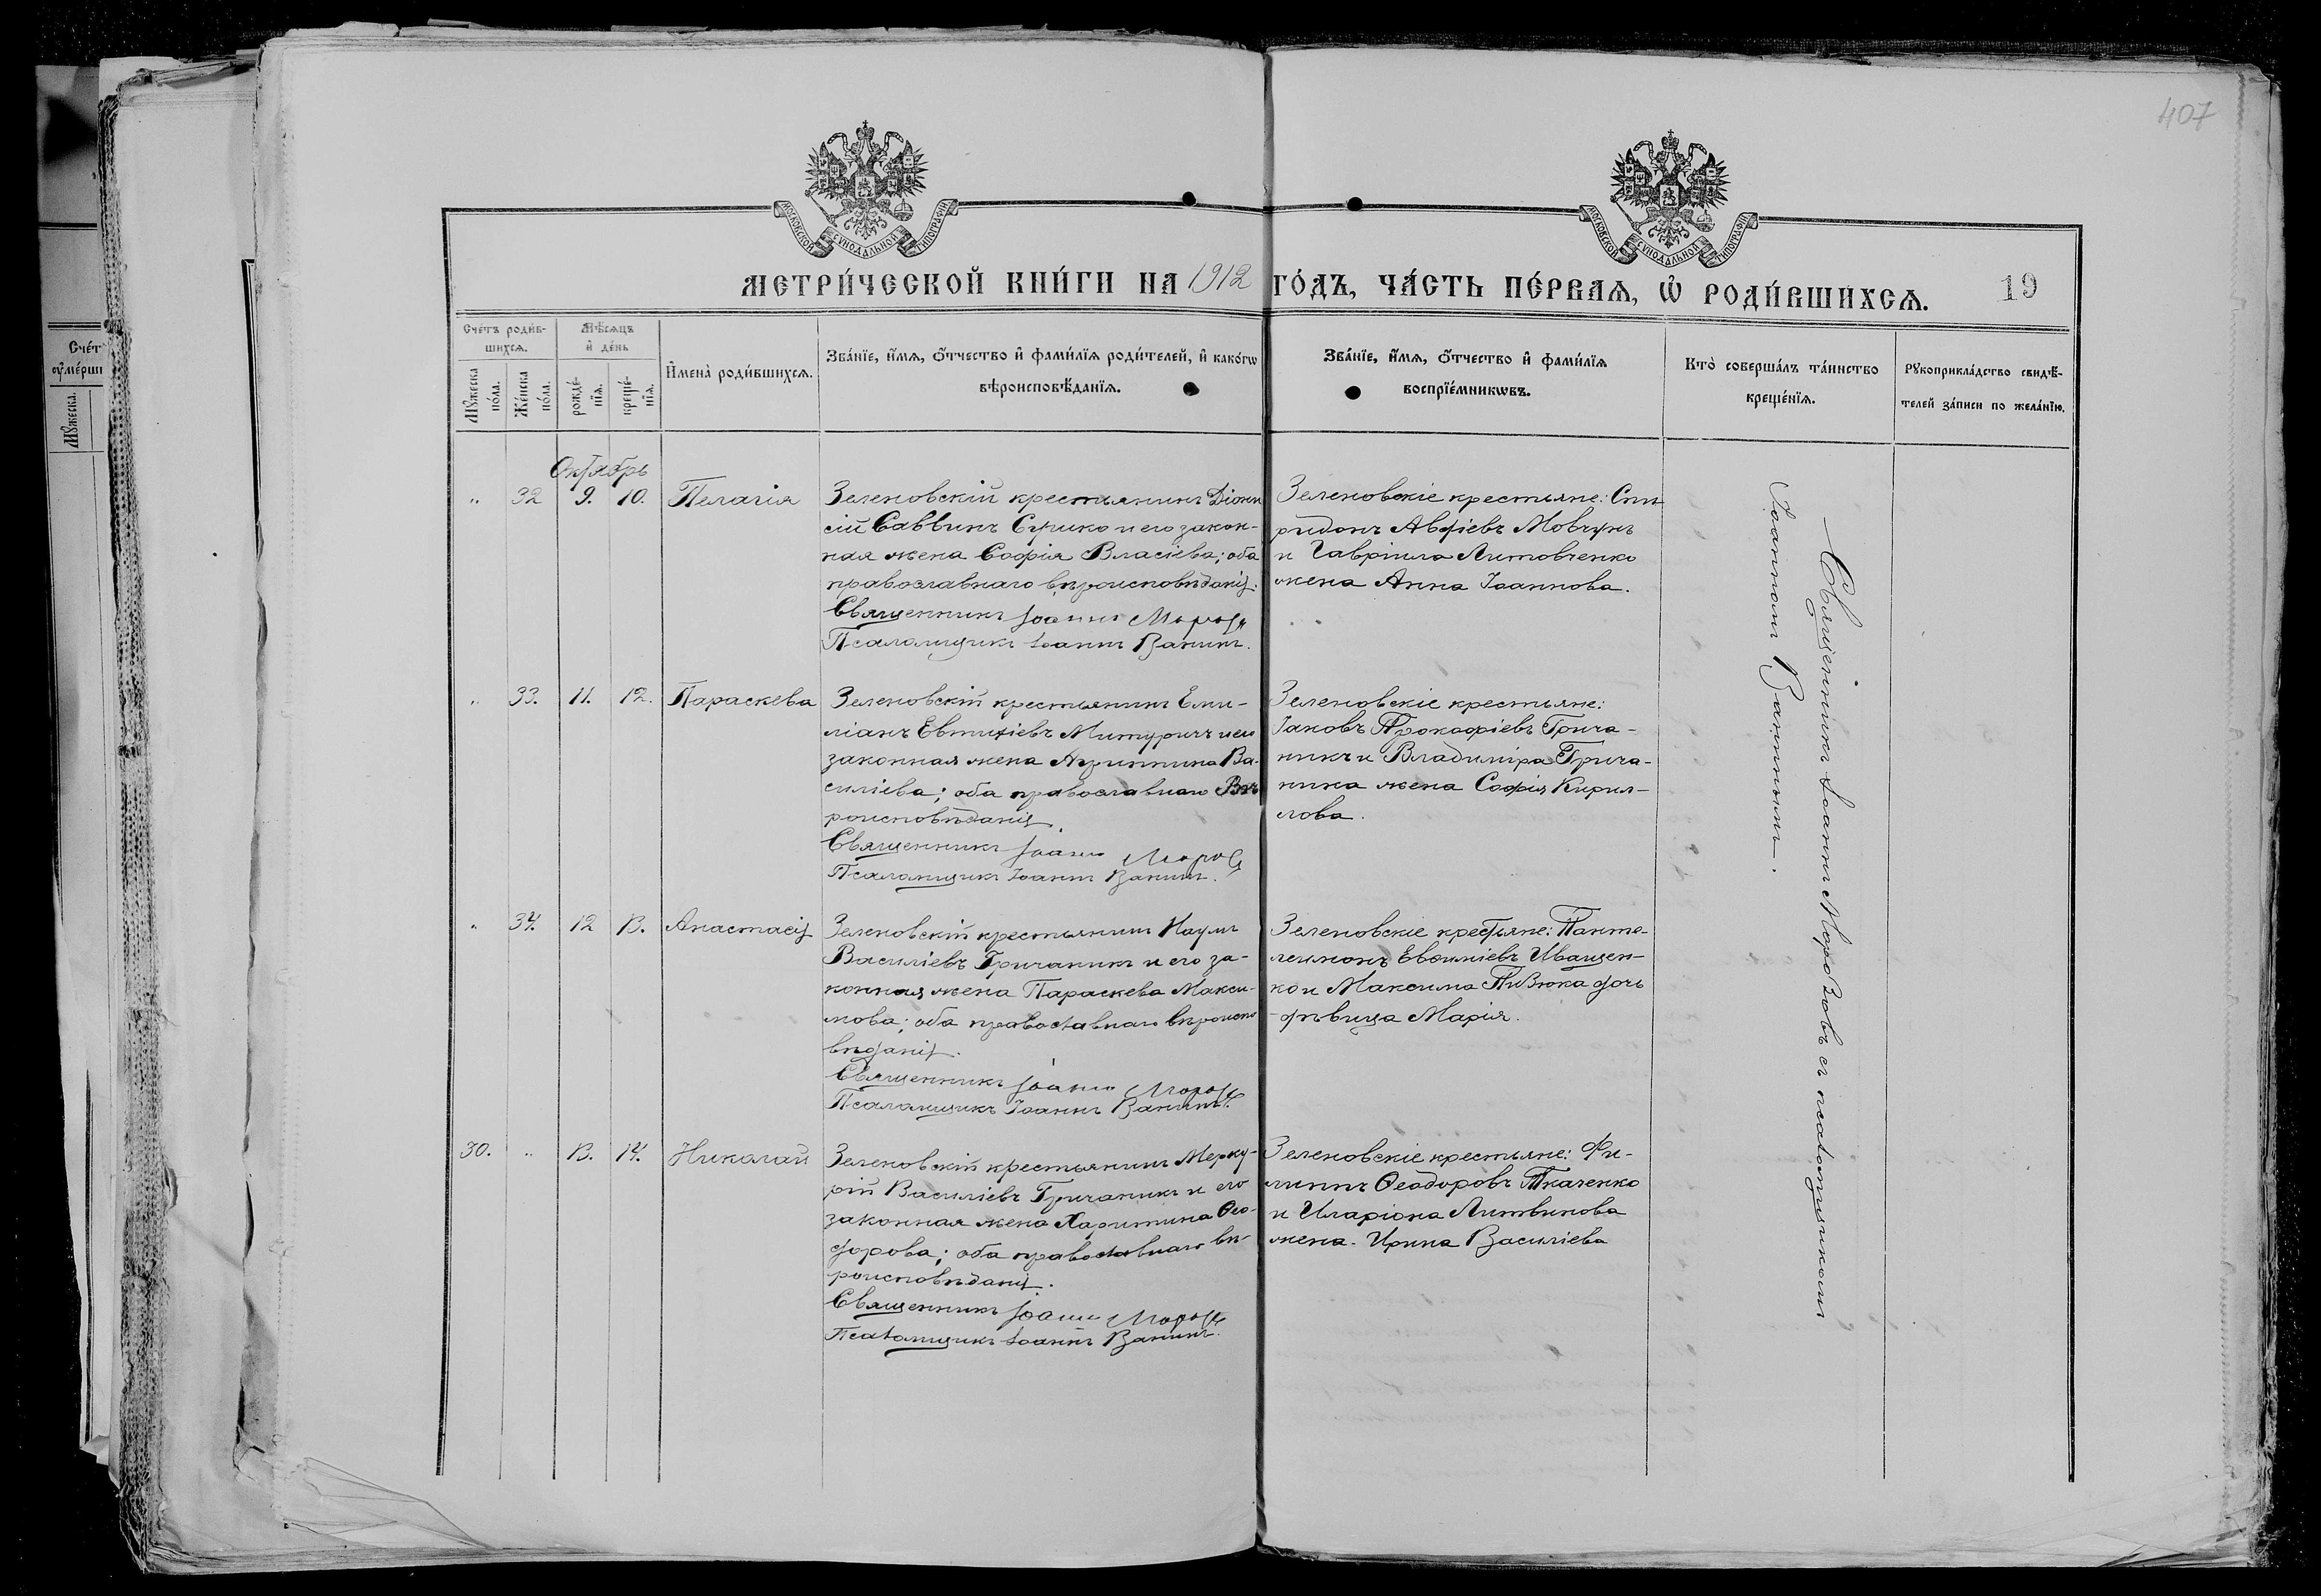 407
МОСКОВСКОЙ СѴНОДАЛЬНОЙ ТИПОГРАФІИ
МОСКОВСКОЙ СѴНОДАЛЬНОЙ ТИПОГРАФІИ
МЕТРИ́ЧЕСКОЙ КНИ́ГИ НА 1912 ГО́ДЪ, ЧА́СТЬ ПЕ́РВАѦ, Ѡ҆ РОДИ́ВШИХСѦ. 19
Сче́тъ роди́в-
шихсѧ.
Мѣ́сѧцъ
и҆ де́нь
Мꙋ́жеска по́ла.
Же́нска по́ла.
рожде́-
нїѧ.
креще́-
нїѧ.
И҆мена̀ роди́вшихсѧ.
Зва́нїе, и҆́мѧ, ѻ҆́тчество и҆ фами́лїѧ роди́телей, и҆ како́гѡ
вѣроисповѣ́данїѧ.
Зва́нїе, и҆́мѧ, ѻ҆́тчество и҆ фами́лїѧ
воспрїе́мникѡвъ.
Кто̀ соверша́лъ та́инство
креще́нїѧ.
Рꙋкоприкла́дство свидѣ́-
телей за́писи по жела́нїю.
Сче́т
ᲂу҆ме́рши
Мꙋ́жеска.
Октябрь
" 32 9. 10. Пелагія
Зеленовскій крестьянинъ Діони
сій Саввинъ Сушко и его закон-
ная жена Софія Власіева; оба
православнаго вѣроисповѣданія.
Священникъ Іоаннъ Морозовъ
Псаломщикъ Іоаннъ Ванинъ.
Зеленовскіе крестьяне: Спи
ридонъ Авфіевъ Мовчунъ
и Гавріила Литовченко
жена Анна Іоаннова.
" 33. 11. 12. Параскева
Зеленовскій крестьянинъ Еми-
ліанъ Евтихіевъ Митуричъ и его
законная жена Агриппина Ва-
силіева; оба православнаго Вѣ
роисповѣданія.
Священникъ Іоаннъ Морозовъ
Псаломщикъ Іоаннъ Ванинъ.
Зеленовскіе крестьяне:
Іаковъ Прокофіевъ Грича-
никъ и Владиміра Грича-
ника жена Софія Кирил-
лова.
" 34. 12 13. Анастасія
Зеленовскій крестьянинъ Наумъ
Василіевъ Гричаникъ и его за-
конная жена Параскева Макси-
мова; оба православнаго вѣроиспо
вѣданія.
Священникъ Іоаннъ Морозовъ
Псаломщикъ Іоаннъ Ванинъ.
Зеленовскіе крестьяне: Панте-
леимонъ Евѳиміевъ Иващен-
ко и Максима Пивнюка дочь
дѣвица Марія.
30. " 13. 14. Николай
Зеленовскій крестьянинъ Мерку-
рій Василіевъ Гричаникъ и его
законная жена Харитина Ѳео-
дорова; оба православнаго вѣ-
роисповѣданія.
Священникъ Іоаннъ Морозовъ
Псаломщикъ Іоаннъ Ванинъ.
Зеленовскіе крестьяне: Фи-
липпъ Ѳеодоровъ Ткаченко
и Иларіона Литвинова
жена Ирина Василіева
Священникъ Іоаннъ Морозовъ съ псаломщикомъ
Іоанномъ Ванинымъ.